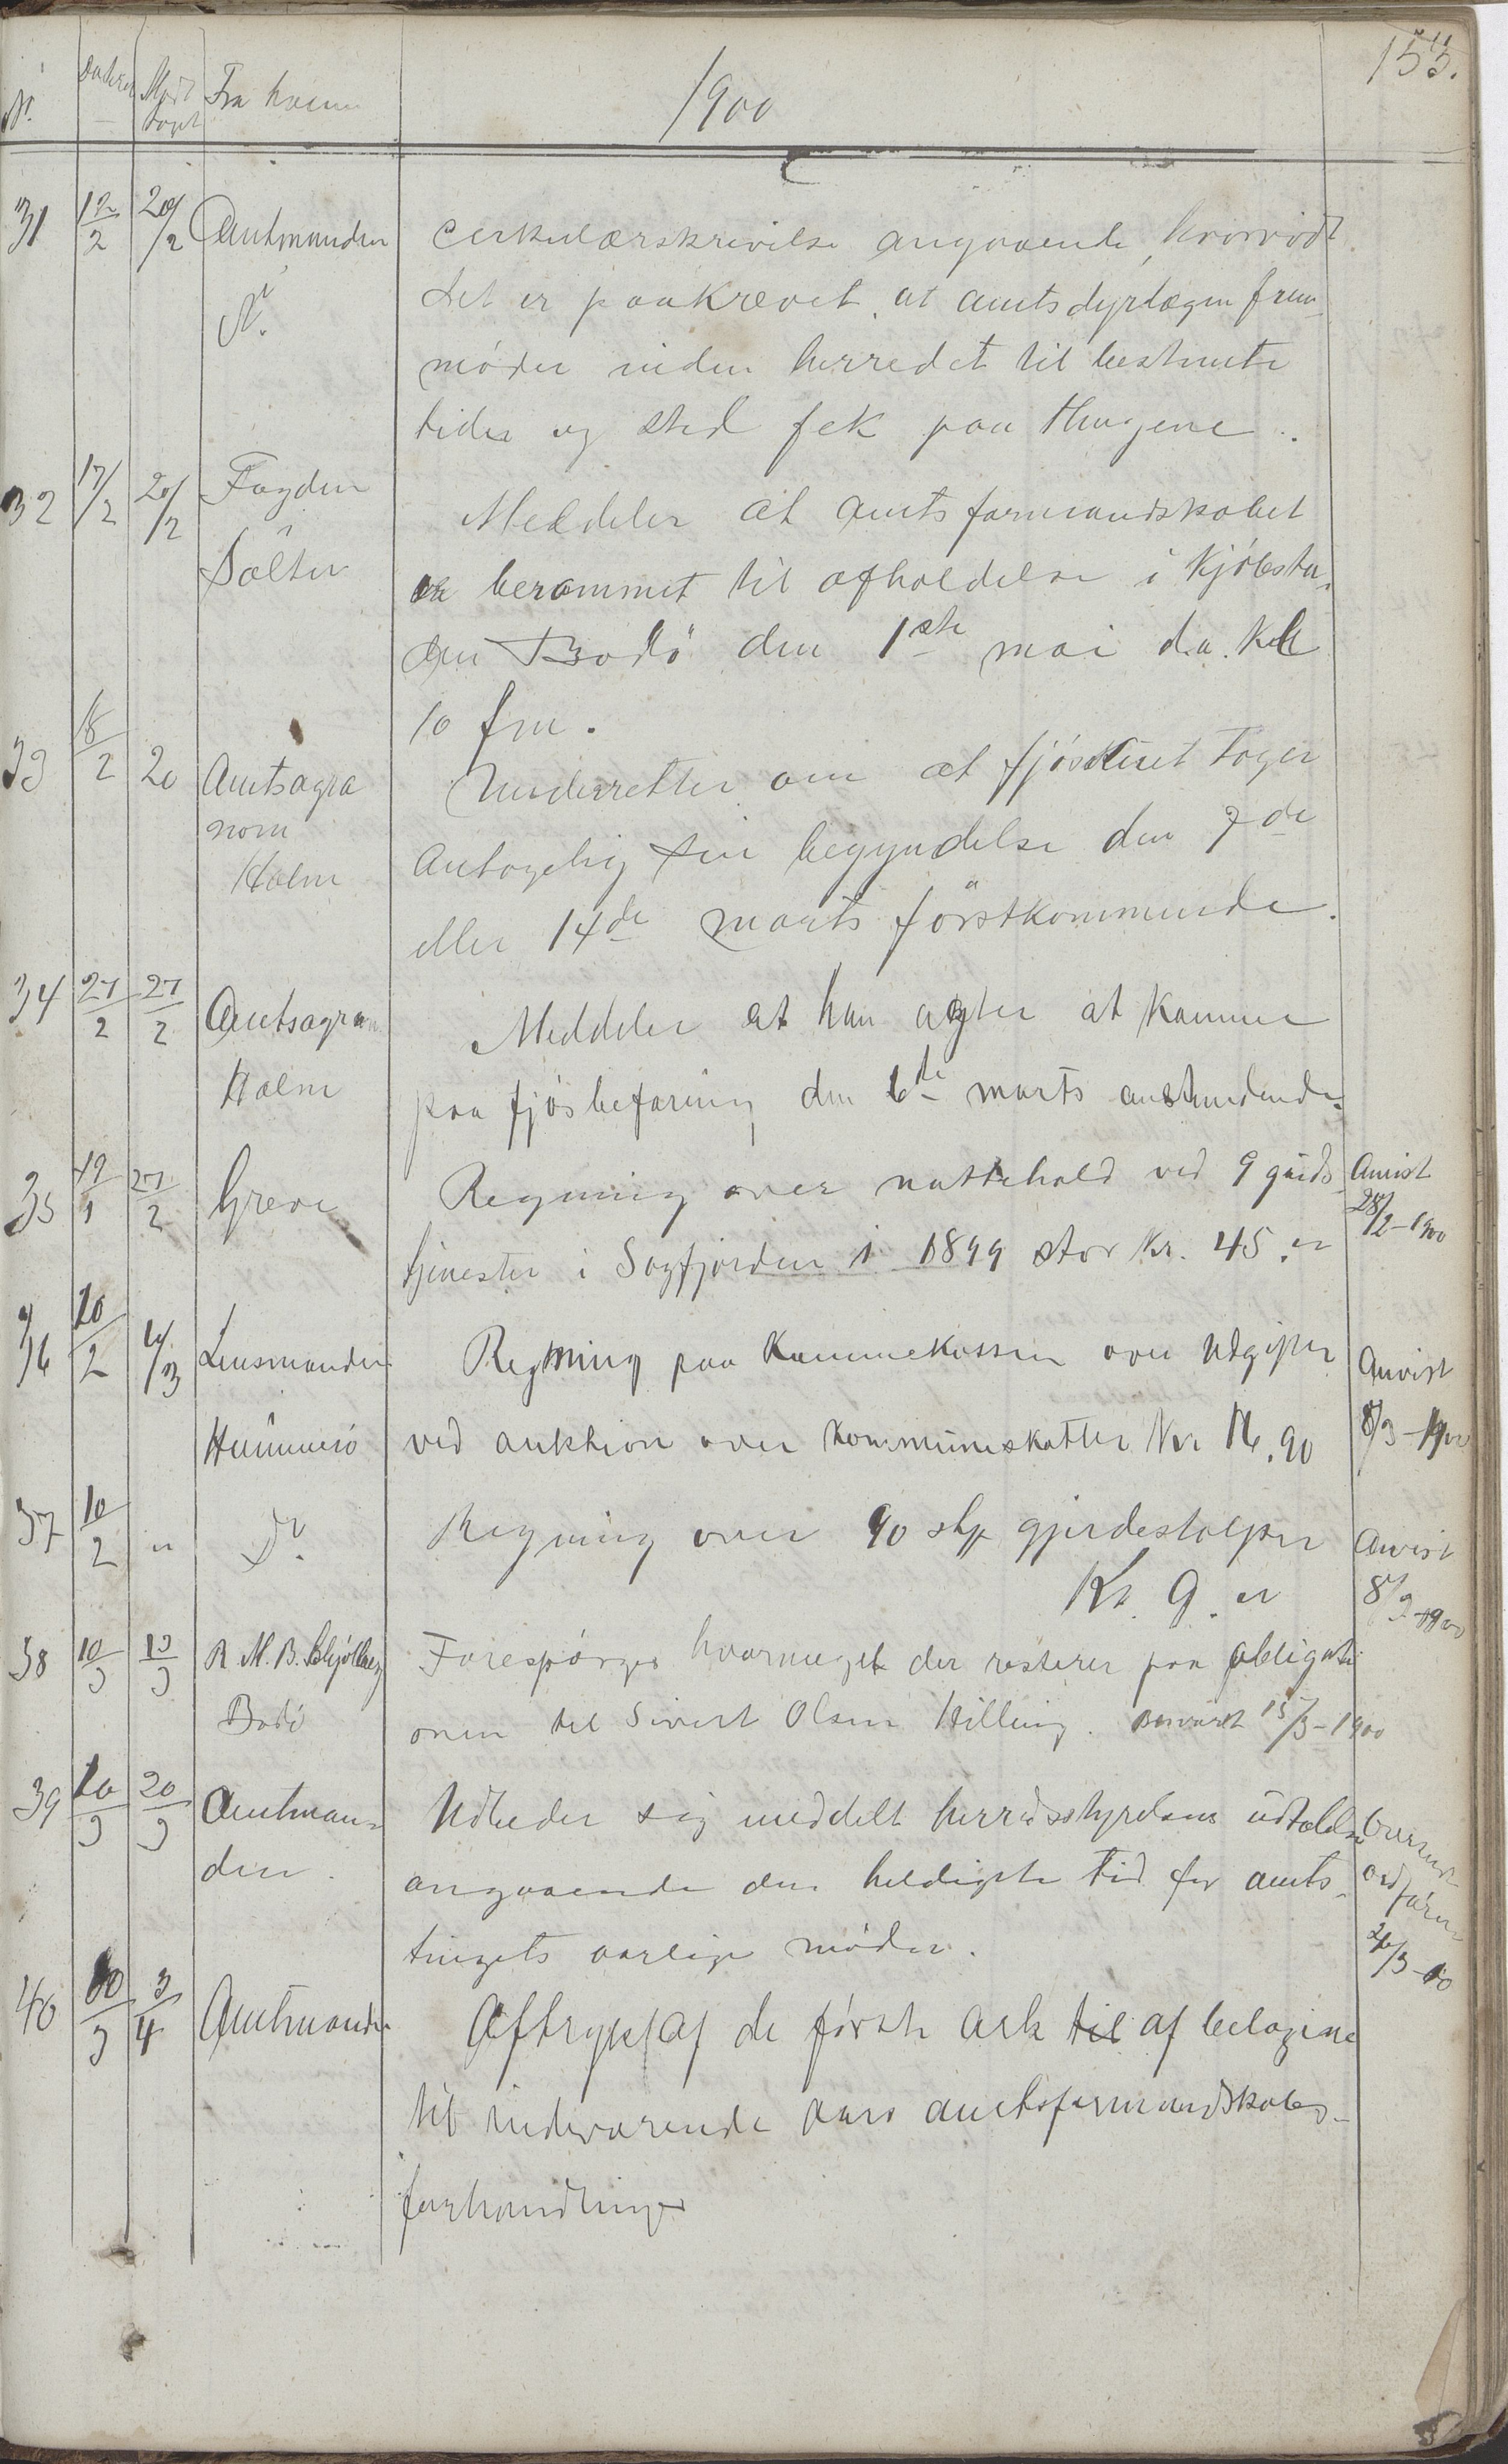 155.
N. Datum Modt Fra hvem
taget
1900
31 12/2 20/2 Amtmanden Cirkulærskrivelse angaaende, hvorvidt
N. det er paakrevet at amtsdyrlægen frem-
møder inden herredet til bestemte
tider og sted f ek paa thingene.
32 17/2 20/2 Fogden Meddeler at amtsformandskabet
Salten er berammet til afholdelse i kjøbsta-
den Bodö den 1ste mai d.a. kl
10 fm.
33 18/2 20 Amtsagro Underretter om at fjøsstellet tager
nom antagelig sin begyndelse den 7de
Holm eller 14de marts förstkommende.
34 27/2 27/2 Amtsagron Meddeler at han agter at komme
Holm paa fjøsbefaring den 6te marts anstundende
35 19/1 27/2 Greve Regning over nattehold ved 9 guds- Anvist
tjenester i Sagfjorden i 1899 stor Kr. 45." 28/2-1900
36 20/2 6/3 Lensmanden Regning paa Kommekassen over udgifter Anvist
Hammerö ved auktion over kommuneskatter Kr 16.90 8/3-1900
37 10/2 " Do. Regning over 90 stk gjerdestolper Anvist
Kr. 9." 8/3-1900
38 10/3 13/3 Forespørger hvormeget der resterer paa obligati
Bodö onen til Sivert Olsen Hilling. Besvaret 15/3-1900
39 10/3 20/3 Amtman- Udbeder sig meddelt herredsstyrelsens udtalelse Oversendt
den angaaende den heldigste tid for amts- ordfören
tingets aarlige møder. 26/3-00
40 30/3 3/4 Amtmanden Aftryk af de første ark til af bilagene
til indeværende aars amtsformandskabs-
forhandlinger